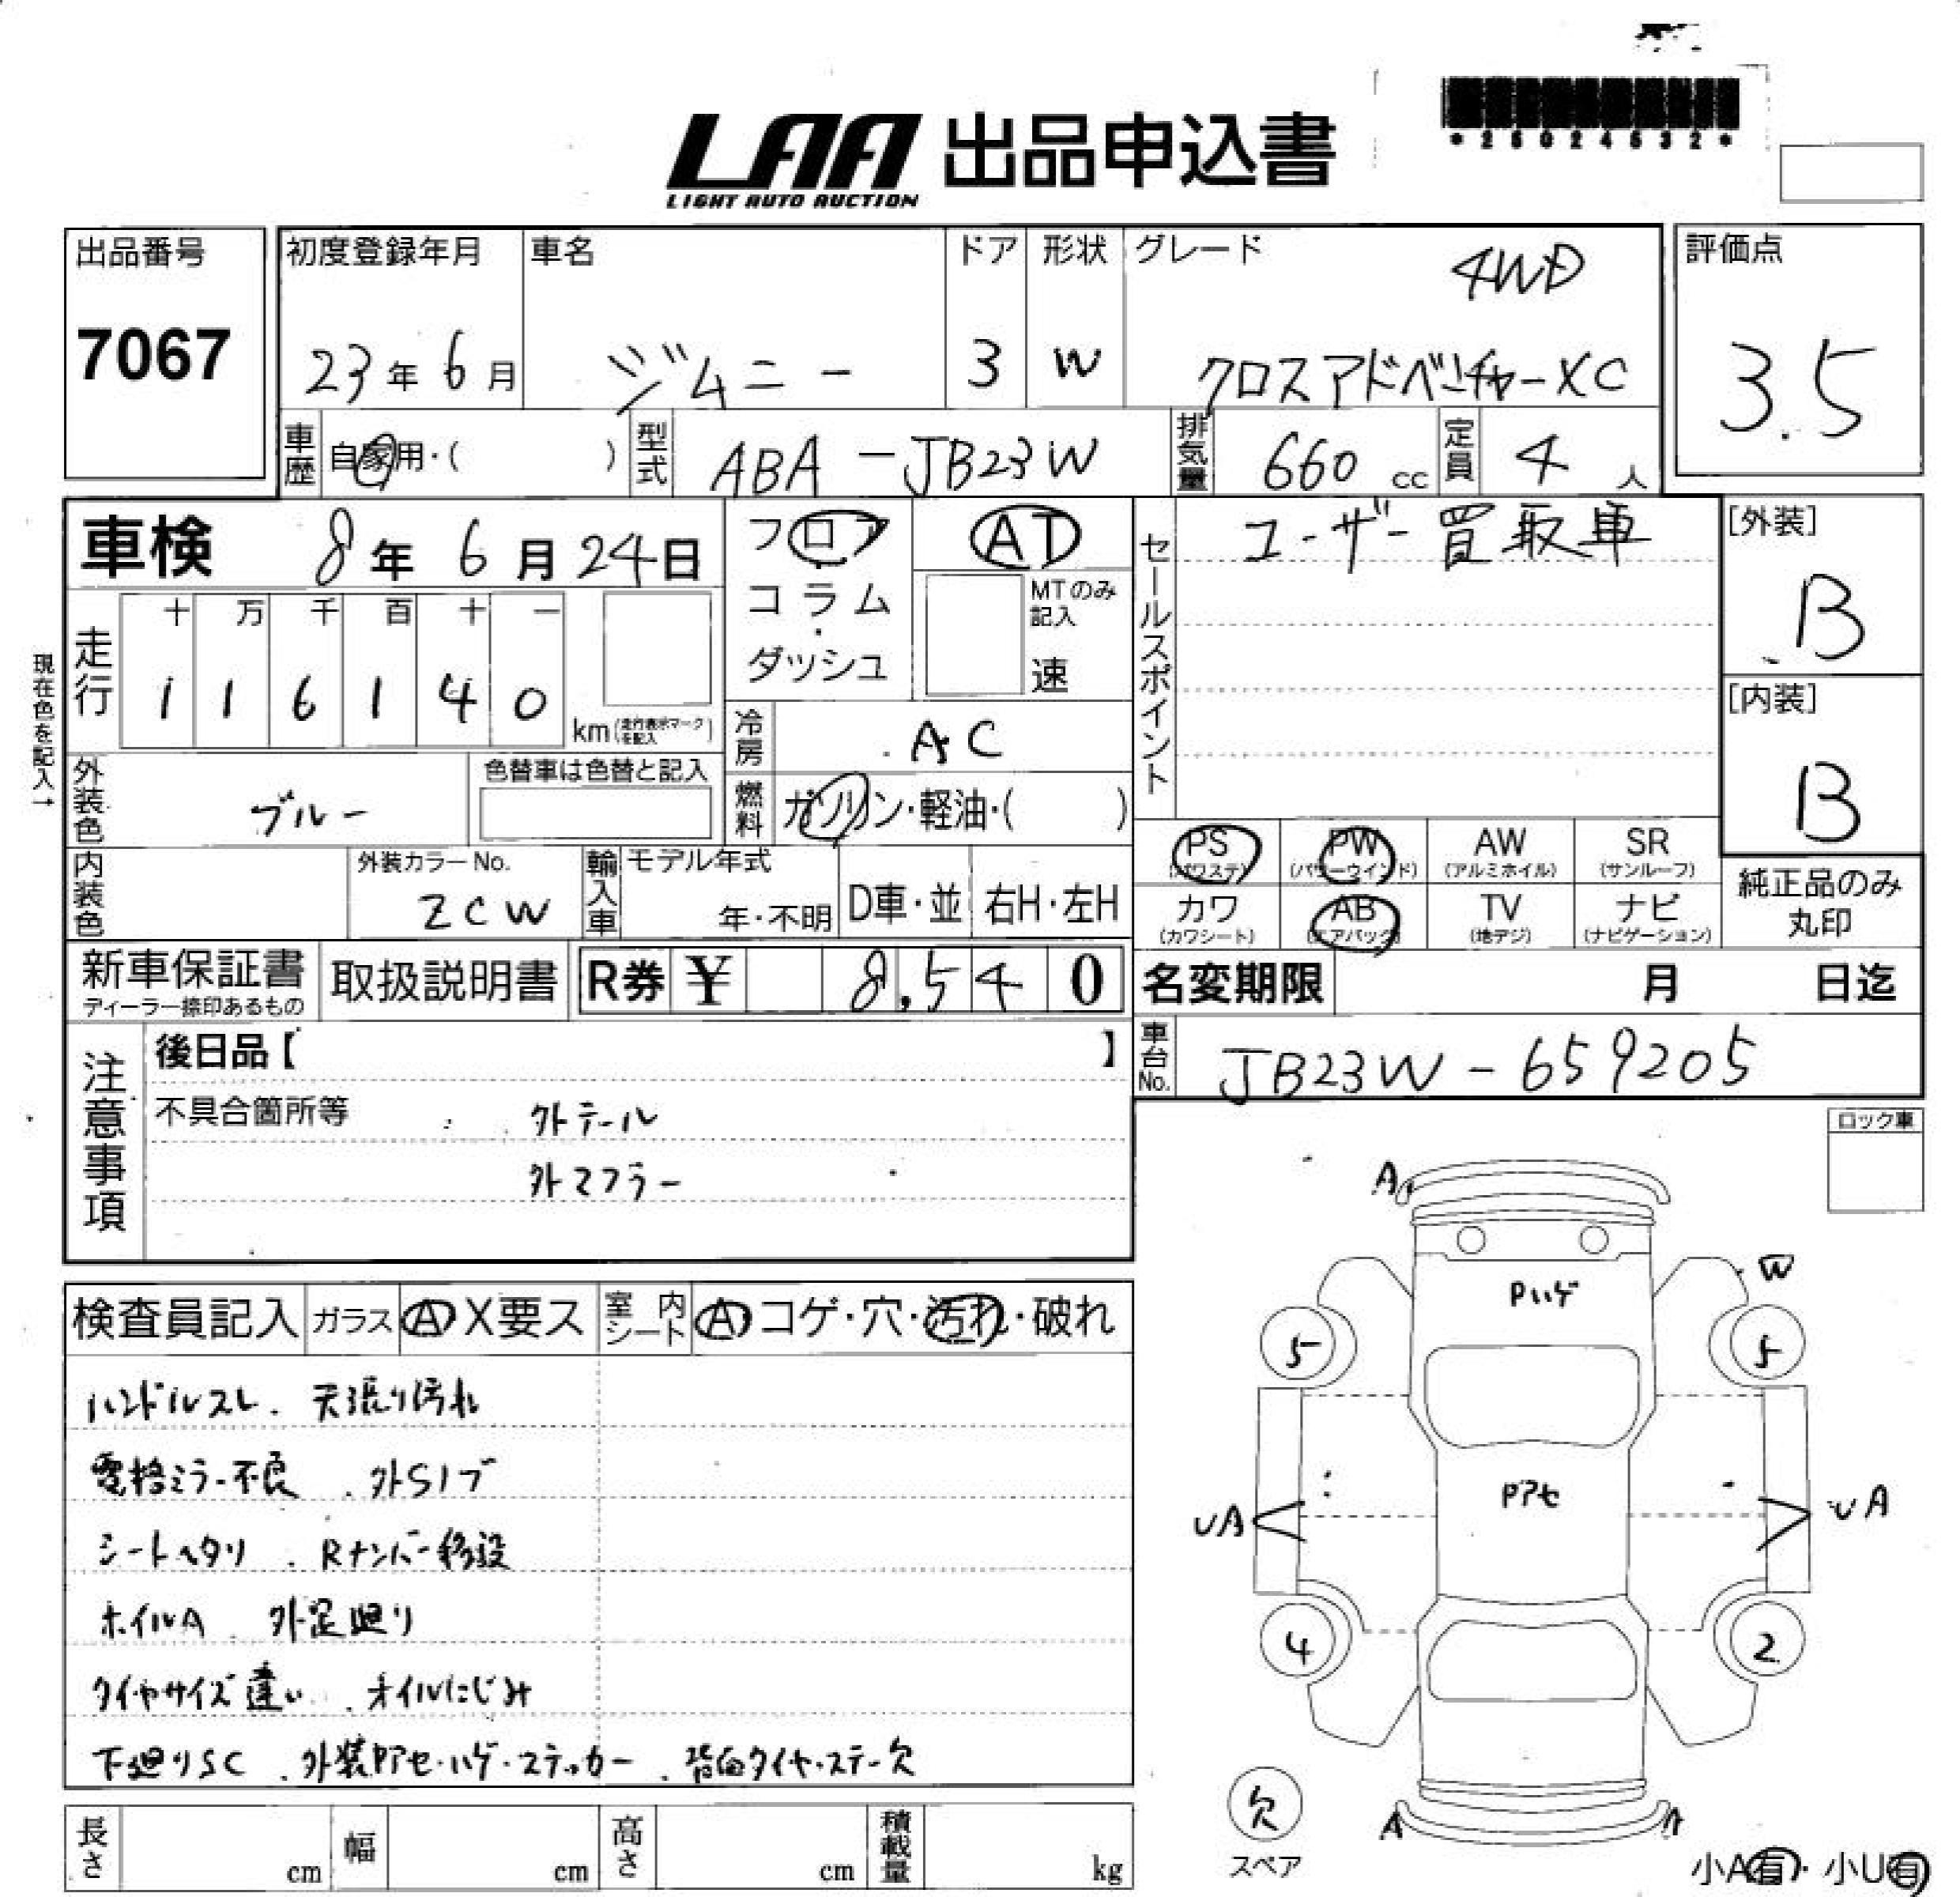 *25024532*
LAA 出品申込書
LIGHT AUTO AUCTION
出品番号 初度登録年月 車名 ドア 形状 グレード 4WD 評価点
7067 23年 6月 ジムニー 3 W クロスアドベンチャーXC 3.5
車歴 自家用・( ) 型式 ABA-JB23W 排気量 660 cc 定員 4 人
車検 8年 6月 24日 フロア AT セールスポイント ユーザー買取車 [外装]
コラム・ MTのみ記入 B
ダッシュ 速
現在色を記入→
走行 十 万 千 百 十 一
1 1 6 1 4 0 km (走行表示マークを記入) [内装]
冷房 AC B
外装色 ブルー 色替車は色替と記入 燃料 ガソリン・軽油・( )
PS (パワステ) PW (パワーウインド) AW (アルミホイル) SR (サンルーフ)
カワ (カワシート) AB (エアバック) TV (地デジ) ナビ (ナビゲーション)
純正品のみ
丸印
内装色 外装カラーNo. ZCW 輸入車 モデル年式 年・不明 D車・並 右H・左H
新車保証書 取扱説明書 R券 ¥ 8,540 名変期限 月 日迄
ディーラー捺印あるもの
車台No. JB23W-659205
注意事項
後日品【 】
不具合箇所等 外テール
外マフラー
ロック車
検査員記入 ガラス A X要ス 室内シート A コゲ・穴・汚れ・破れ
ハンドルスレ. 天張り汚れ
電格ミラー不良 . 外Sノブ
シートヘタリ . Rナンバー移設
ホイルA 外足廻り
タイヤサイズ違い . オイルにじみ
下廻りSC . 外装Pアセ・ハゲ・ステッカー . 背面タイヤ・ステー欠
長さ cm 幅 cm 高さ cm 積載量 kg
A
W
Pハゲ
5 5
Pアセ
UA UA
4 2
欠
スペア
A A
小A有・小U有